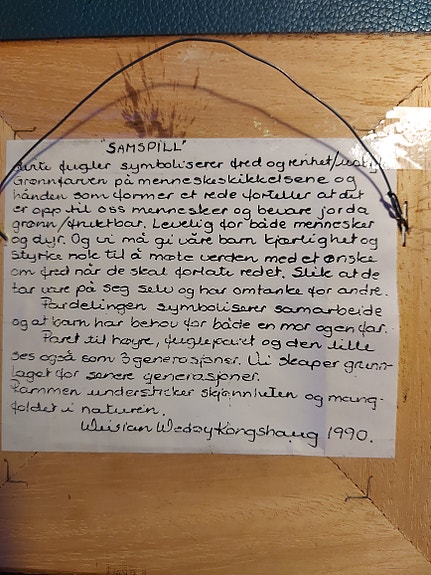 "SAMSPILL"
fugler symboliserer fred og renhet/
Grønnfarven på menneskeskikkelsene og
hånden som former et rede forteller at det
er opp til oss mennesker og bevare jorda
grønn/fruktbar. Levelig for både mennesker
og dyr. Og vi må gi våre barn kjærlighet og
styrke nok til å møte verden med et ønske
om fred når de skal forlate redet. Slik at de
tar vare på seg selv og har omtanke for andre.
Pardelingen symboliserer samarbeide
og at barn har behov for både en mor og en far.
Paret til høyre, fugleparet og den lille
ses også som 3 generasjoner. Vi skaper grunn-
laget for senere generasjoner.
Rammen understreker skjønnheten og mang-
foldet i naturen.
Kongshaug 1990.